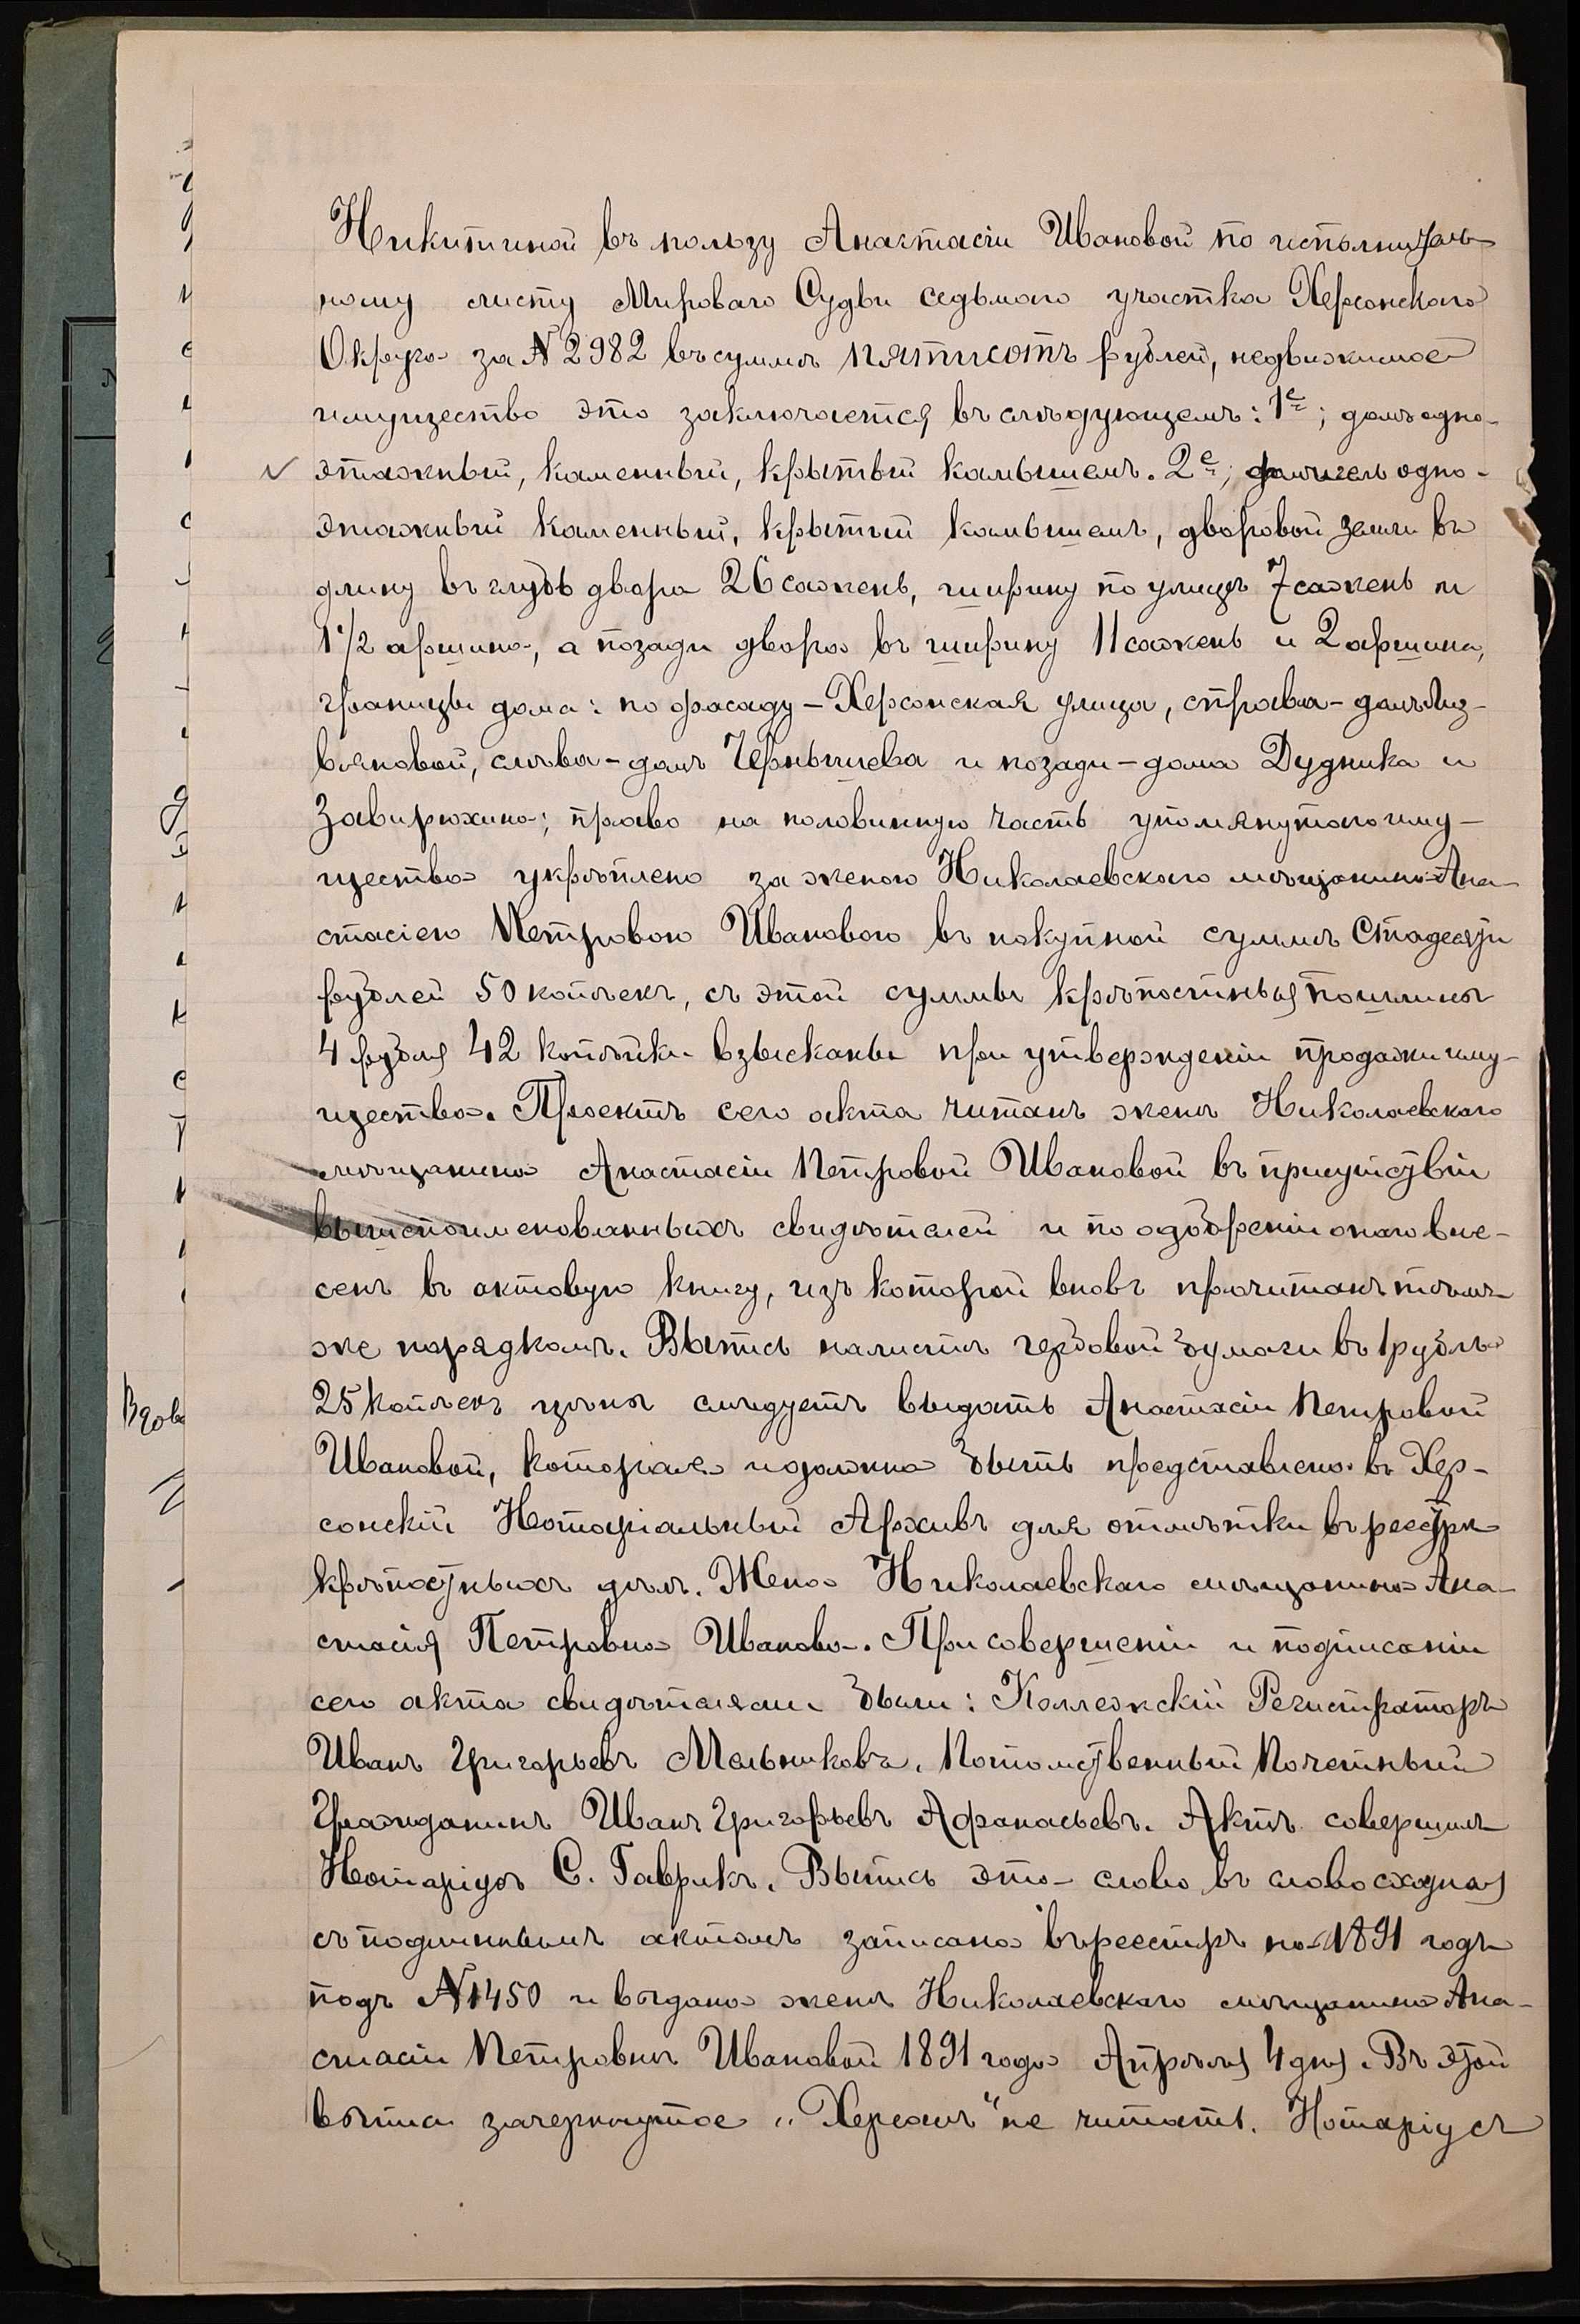 Никитиной въ пользу Анастасіи Ивановой по исполнитель
ному листу Мироваго Судьи седьмаго участка Херсонскаго
Округа за № 2982 въ суммѣ пятисотъ рублей, недвижимое
имущество это заключается въ слѣдующемъ: 1е; домъ одно-
этажный, каменный, крытый камышемъ. 2е; флигель одно-
этажный каменный, крытый камышемъ, дворовой земли въ
длину въ глубь двора 26 сажень, ширину по улицѣ 7 сажень и
1 1/2 аршина, а позади двора въ ширину 11 сажень и 2 аршина,
границы дома: по фасаду – Херсонская улица, справа – домъ
слѣва – домъ Чернышева и позади – дома Дудника и
Завирюхина; право на половинную часть упомянутаго иму-
щества укрѣплено за женою Николаевскаго мѣщанина Ана-
стасіею Петровою Ивановою въ покупной суммѣ Стадесяти
рублей 50 копѣекъ, съ этой суммы крѣпостныя пошлины
4 рубля 42 копѣйки взысканы при утвержденіи продажи иму-
щества. Проектъ сего акта читанъ женѣ Николаевскаго
мѣщанина Анастасіи Петровой Ивановой въ присутствіи
вышепоименованныхъ свидѣтелей и по одобреніи онаго вне-
сенъ въ актовую книгу, изъ которой вновь прочитанъ тѣмъ-
же порядкомъ. Выпись на листѣ гербовой бумаги въ 1 рубль
25 копѣекъ цѣны слѣдуетъ выдать Анастасіи Петровой
Ивановой, которая и должна быть представлена въ Хер-
сонскій Нотаріальный Архивъ для отмѣтки въ реестрѣ
крѣпостныхъ дѣлъ. Жена Николаевскаго мѣщанина Ана-
стасія Петровна Иванова. При совершеніи и подписаніи
сего акта свидѣтелями были: Коллежскій Регистраторъ
Иванъ Григорьевъ Мельниковъ. Потомственный Почетный
Гражданинъ Иванъ Григорьевъ Афанасьевъ. Актъ совершилъ
Нотаріусъ С. Гаврикъ. Выпись эта слово въ слово сходная
съ подлиннымъ актомъ записана въ реестръ на 1891 годъ
подъ № 1450 и выдана женѣ Николаевскаго мѣщанина Ана-
стасіи Петровнѣ Ивановой 1891 года Апрѣля 4 дня. Въ этой
выписи зачеркнутое „Херсонъ“ не читать. Нотаріусъ
Вдова